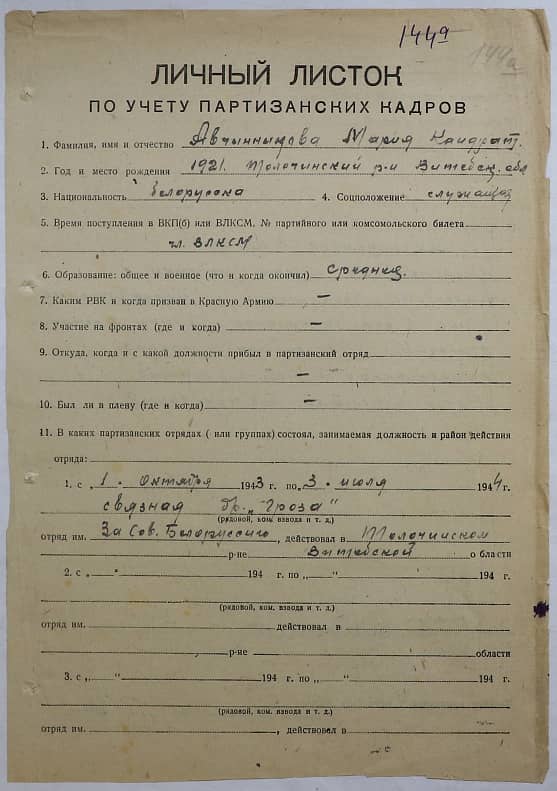 144а
144а
ЛИЧНЫЙ ЛИСТОК
ПО УЧЕТУ ПАРТИЗАНСКИХ КАДРОВ
1. Фамилия, имя и отчество Авчинникова Мария Кондрат.
2. Год и место рождения 1921. Толочинский р-н Витебск. обл
3. Национальность белоруска 4. Соцположение служащая
5. Время поступления в ВКП(б) или ВЛКСМ, № партийного или комсомольского билета
чл. ВЛКСМ
6. Образование: общее и военное (что и когда окончил) среднее
7. Каким РВК и когда призван в Красную Армию —
8. Участие на фронтах (где и когда) —
9. Откуда, когда и с какой должности прибыл в партизанский отряд
—
10. Был ли в плену (где и когда) —
11. В каких партизанских отрядах (или группах) состоял, занимаемая должность и район действия
отряда:
1. с „1" октября 1943 г. по „3" июля 1944 г.
связная бр. „Гроза"
(рядовой, ком. взвода и т. д.)
отряд им. За Сов. Белоруссию, действовал в Толочинском
р-не Витебской области
2. с „ " 194 г. по „ " 194 г.
(рядовой, ком. взвода и т. д.)
отряд им. действовал в
р-не области
3. с „ " 194 г. по „ " 194 г.
(рядовой, ком. взвода и т. д.)
отряд им. , действовал в